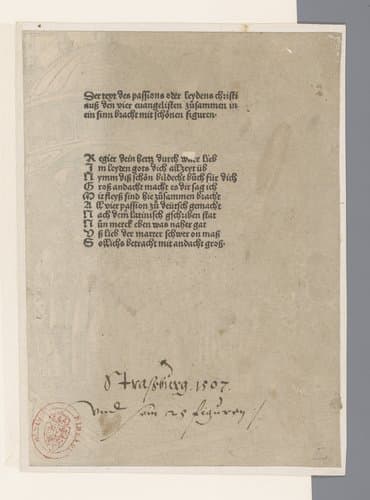 Der text des passions oder leydens christi
auß den vier euangelisten zusammen in
ein sinn bracht mit schönen figuren.
Regier dein hertz durch ware lieb
Im leyden gots dich allzeyt üb
Nymm diß schön bildecht büch für dich
Groß andacht macht es dir sag ich
Mit fleyß sind hie züsammen bracht
All vier passion zü deütsch gemacht
Nach dem latinisch gschriben stat
Nün merck eben was naher gat
Vß lieb der marter schwer on maß
Sollichs betracht mit andacht groß.
Straßburg. 1507.
Vnd sein 25 figuren /.